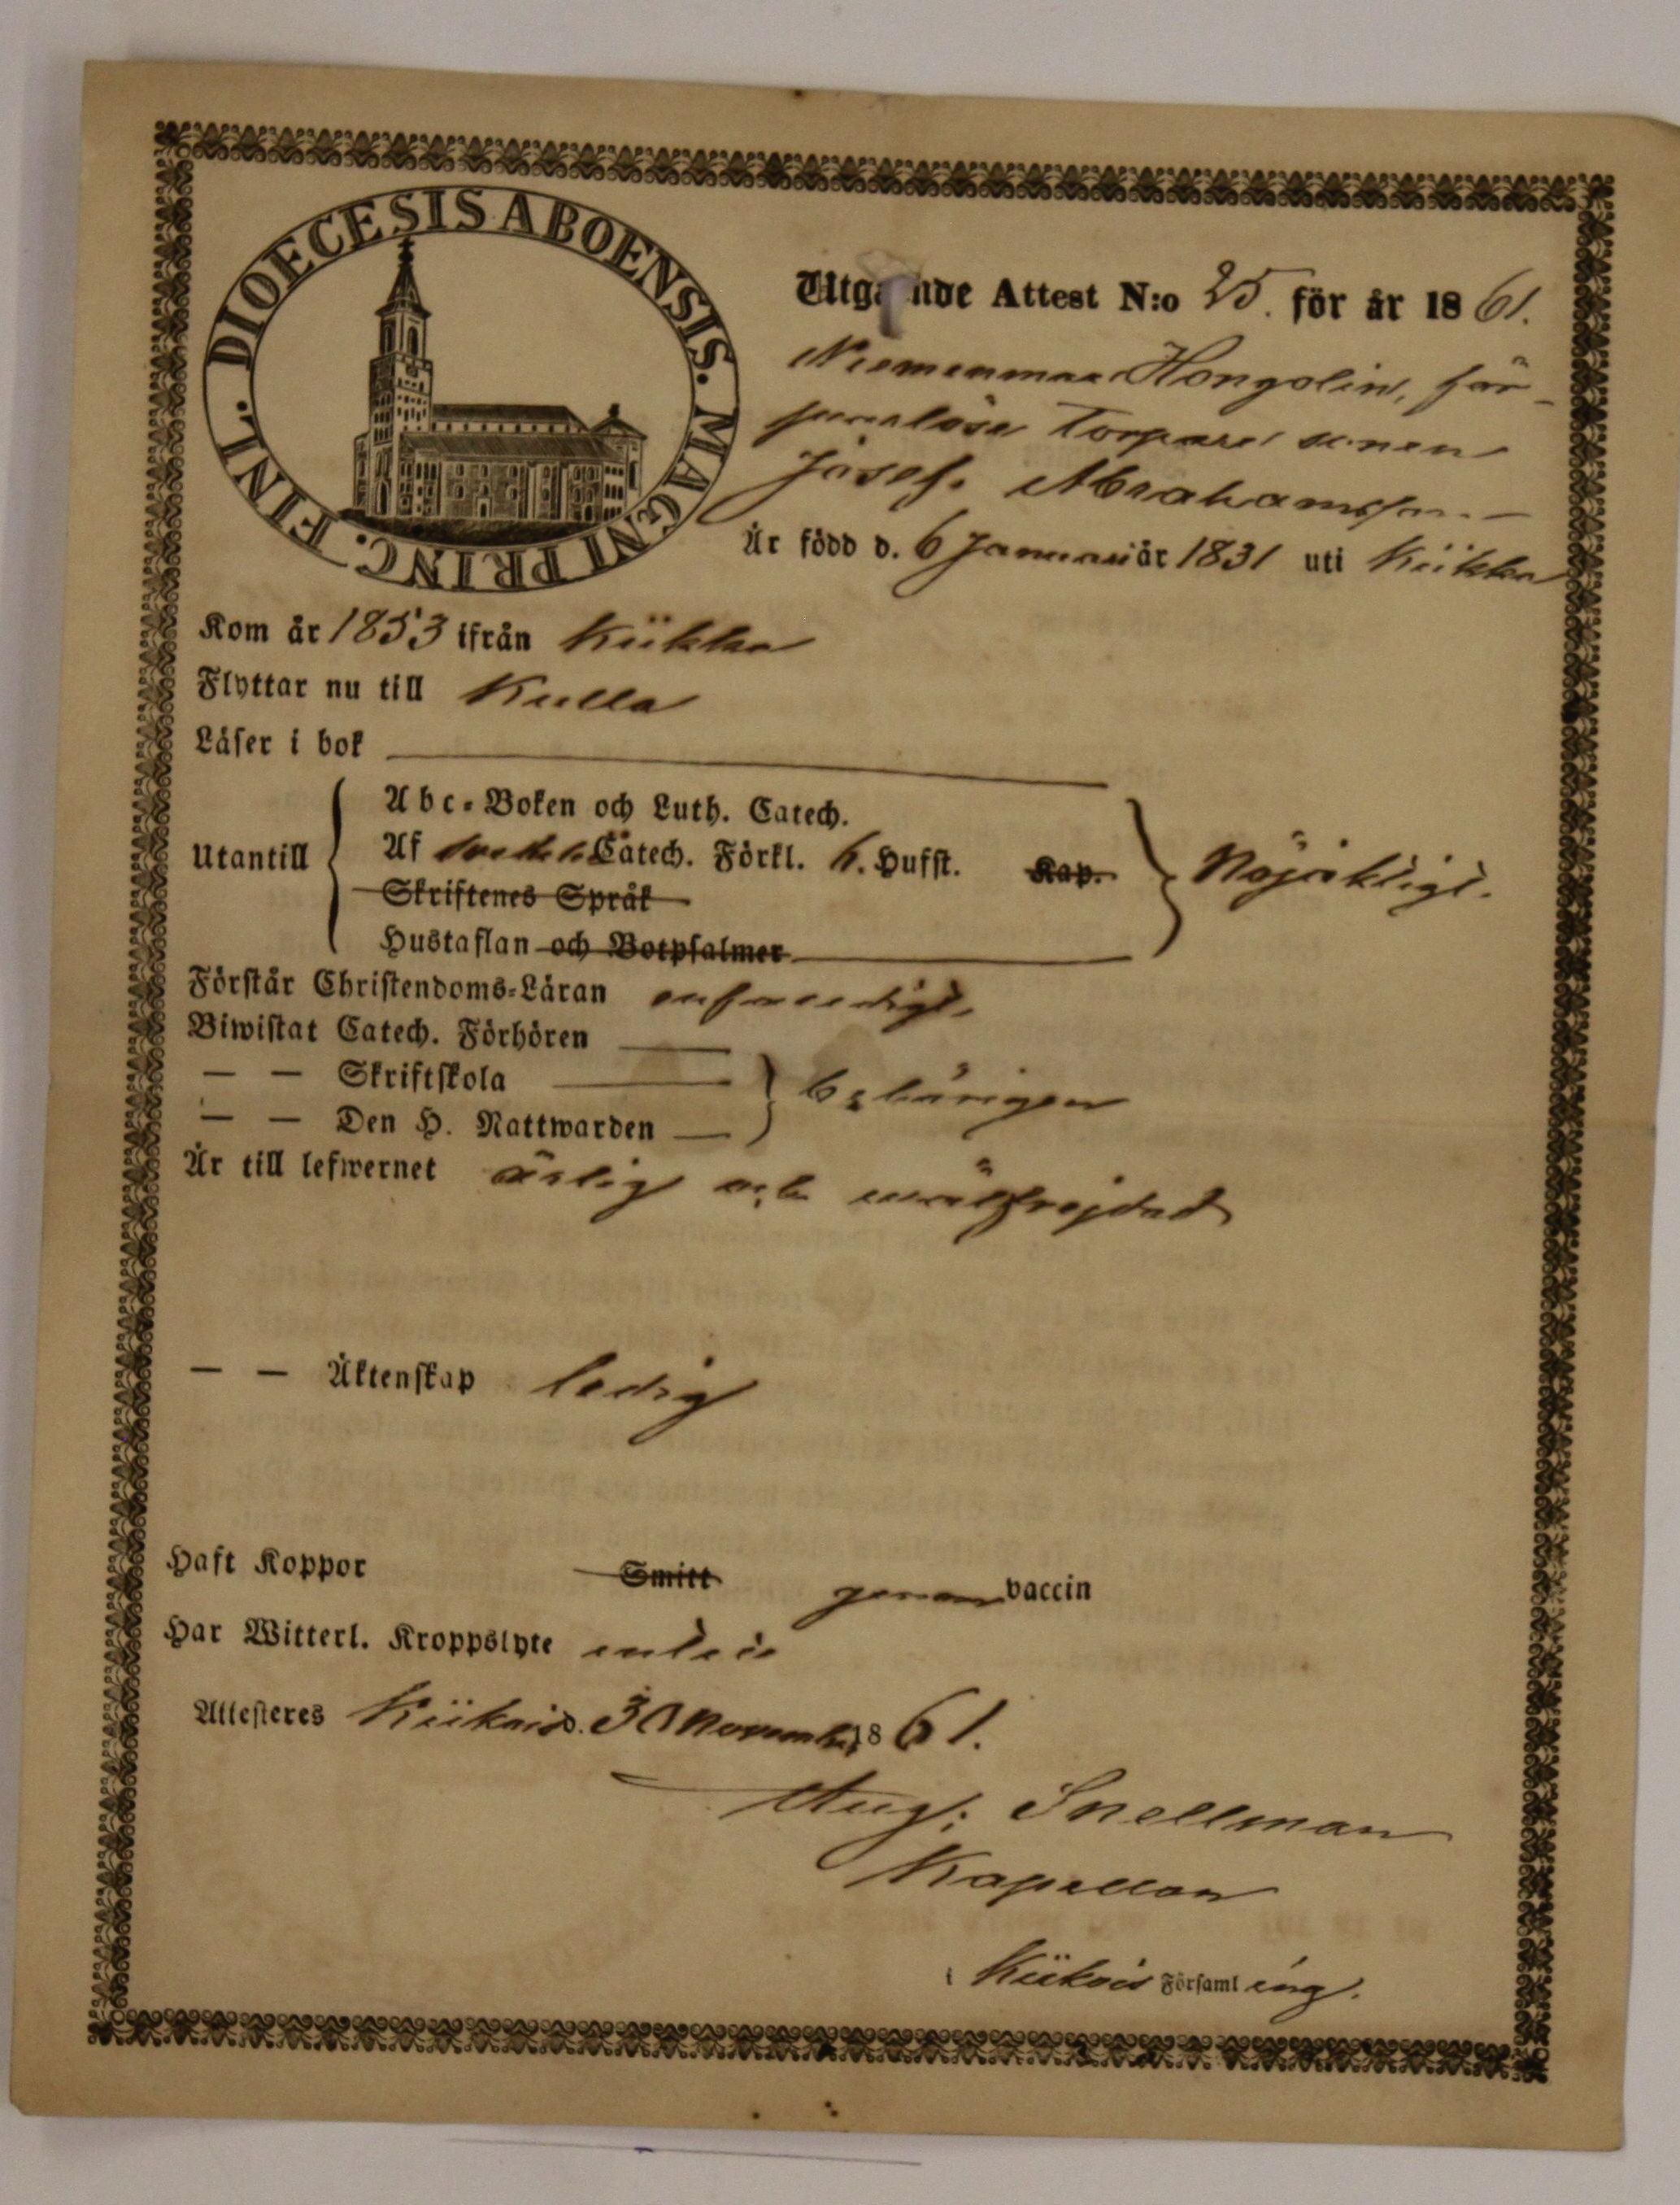 DIOECESIS ABOENSIS. MAGNI PRINC. FINL.
Utgående Attest N:o 25. för år 1861.
Hongolin, för-
Torpare sonen
Josef Abrahamsson
Är född d. 6 Januari år 1831 uti Kiikka
Kom år 1853 ifrån Kiikka
Flyttar nu till Kulla
Läser i bok
Utantill
Abc-Boken och Luth. Catech.
Af Catech. Förkl. h. Hufst. Kap.
Nöjaktligt.
Skriftenes Språk
Hustaflan och Botpsalmer
Förstår Christendoms-Läran enfaldigt,
Biwistat Catech. Förhören
— — Skriftskola
behörigen
— — Den H. Nattwarden
Är till lefwernet ärlig och wälfrejdad
— — Äktenskap ledig
Haft Koppor Smitt genom vaccin
Har Witterl. Kroppslyte
Attesteres Kiikois d. 30 November 1861.
Aug: Snellman
Kapellan
i Kiikois Församling.